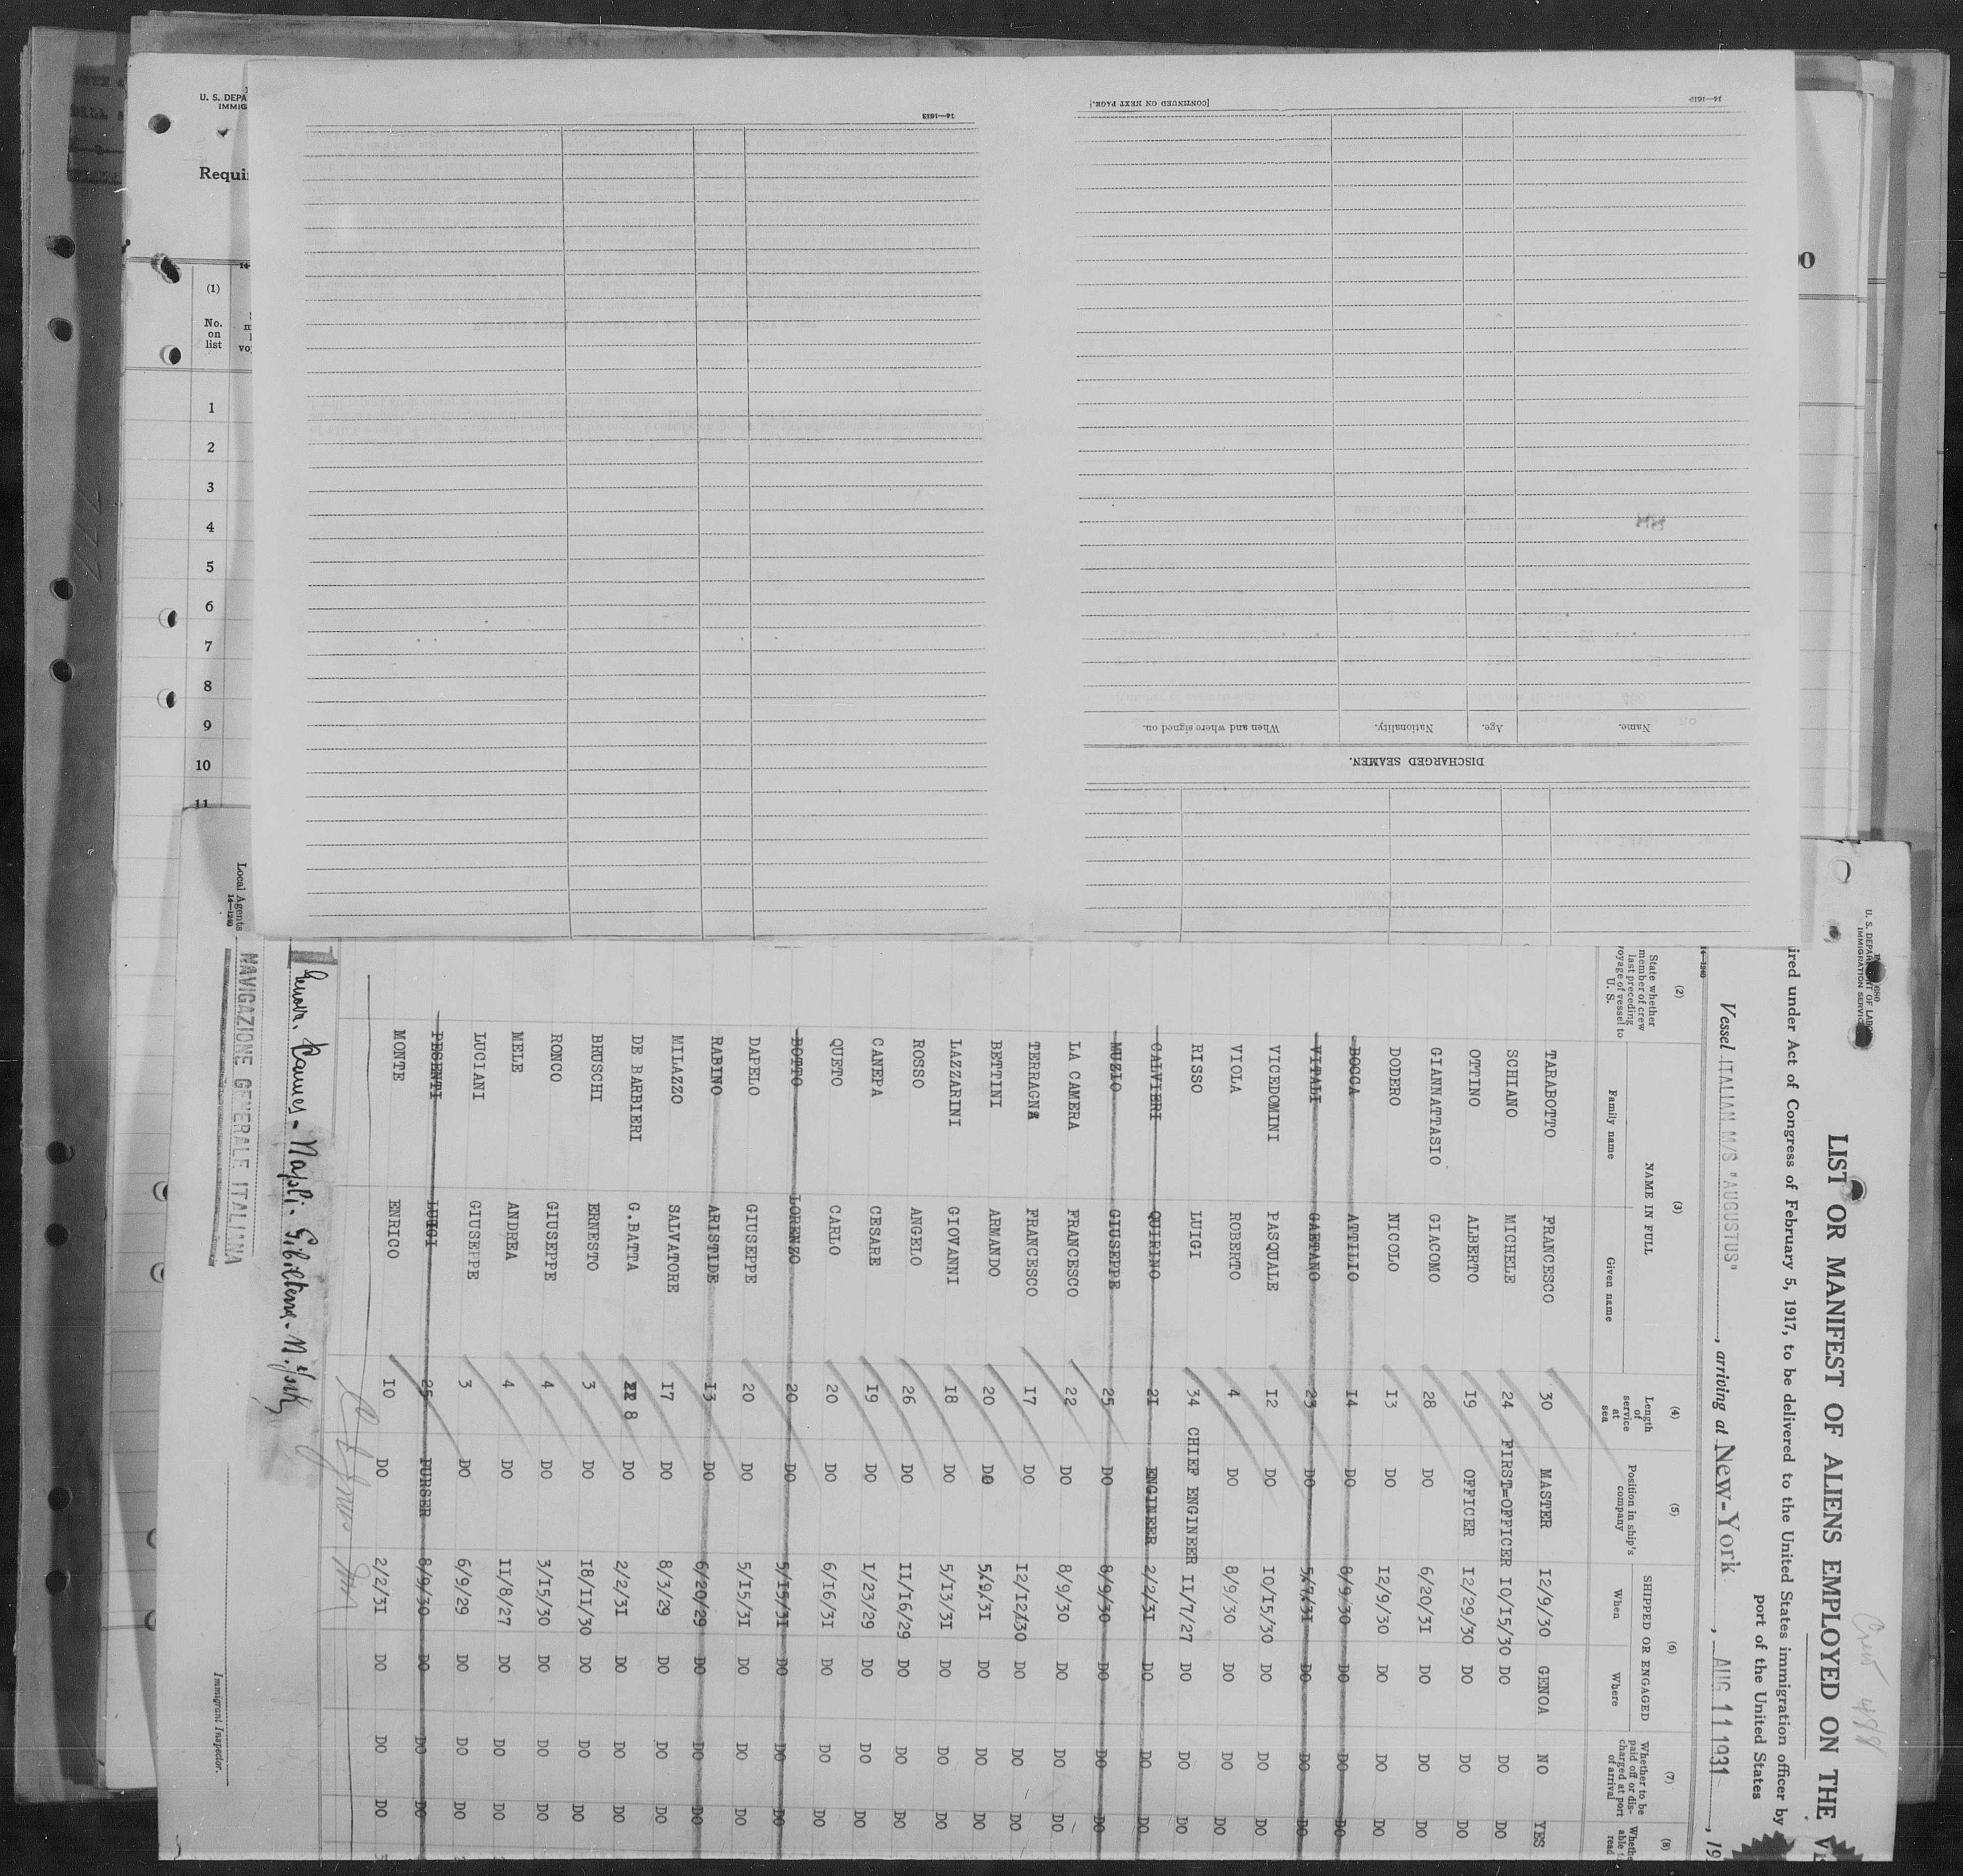 U. S. DEPA
IMMIG
Requi
(1)
No.
on
list
1
2
3
4
5
6
7
8
9
10
11
[CONTINUED ON NEXT PAGE.]
14—1613
14—1613
DISCHARGED SEAMEN.
Name. Age. Nationality. When and where signed on.
U. S. DEPARTMENT OF LABOR
IMMIGRATION SERVICE
Crew 488
LIST OR MANIFEST OF ALIENS EMPLOYED ON THE
ired under Act of Congress of February 5, 1917, to be delivered to the United States immigration officer by
port of the United States
Vessel ITALIAN M/S "AUGUSTUS", arriving at New-York, AUG 11 1931, 19
14—1240
(2) (3) (4) (5) (6) (7) (8)
State whether member of crew last preceding voyage of vessel to U. S.
NAME IN FULL
Family name Given name
Length of service at sea
Position in ship's company
SHIPPED OR ENGAGED
When Where
Whether to be paid off or discharged at port of arrival
TARABOTTO FRANCESCO 30 MASTER 12/9/30 GENOA NO YES
SCHIANO MICHELE 24 FIRST=OFFICER 10/15/30 DO DO DO
OTTINO ALBERTO 19 OFFICER 12/29/30 DO DO DO
GIANNATTASIO GIACOMO 28 DO 6/20/31 DO DO DO
DODERO NICOLO 13 DO 12/9/30 DO DO DO
BOCCA ATTILIO 14 DO 8/9/30 DO DO DO
VITALI GAETANO 23 DO 5/7/31 DO DO DO
VICEDOMINI PASQUALE 12 DO 10/15/30 DO DO DO
VIOLA ROBERTO 4 DO 8/9/30 DO DO DO
RISSO LUIGI 34 CHIEF ENGINEER 11/7/27 DO DO DO
CALVIERI QUIRINO 21 ENGINEER 2/2/31 DO DO DO
MUZIO GIUSEPPE 25 DO 8/9/30 DO DO DO
LA CAMERA FRANCESCO 22 DO 8/9/30 DO DO DO
TERRAGNA FRANCESCO 17 DO 12/12/30 DO DO DO
BETTINI ARMANDO 20 DO 5/9/31 DO DO DO
LAZZARINI GIOVANNI 18 DO 5/13/31 DO DO DO
ROSSO ANGELO 26 DO 11/16/29 DO DO DO
CANEPA CESARE 19 DO 1/23/29 DO DO DO
QUETO CARLO 20 DO 6/16/31 DO DO DO
BOTTO LORENZO 20 DO 5/15/31 DO DO DO
DAPELO GIUSEPPE 20 DO 5/15/31 DO DO DO
RABINO ARISTIDE 13 DO 6/20/29 DO DO DO
MILAZZO SALVATORE 17 DO 8/3/29 DO DO DO
DE BARBIERI G.BATTA 8 DO 2/2/31 DO DO DO
BRUSCHI ERNESTO 3 DO 18/11/30 DO DO DO
RONCO GIUSEPPE 4 DO 3/15/30 DO DO DO
MELE ANDREA 4 DO 11/8/27 DO DO DO
LUCIANI GIUSEPPE 3 DO 6/9/29 DO DO DO
PESENTI LUIGI 25 PURSER 8/9/30 DO DO DO
MONTE ENRICO 10 DO 2/2/31 DO DO DO
1
Genova. Cannes - Napoli - Gibilterra - N. York
NAVIGAZIONE GENERALE ITALIANA
Local Agents
14—1240
Immigrant Inspector.